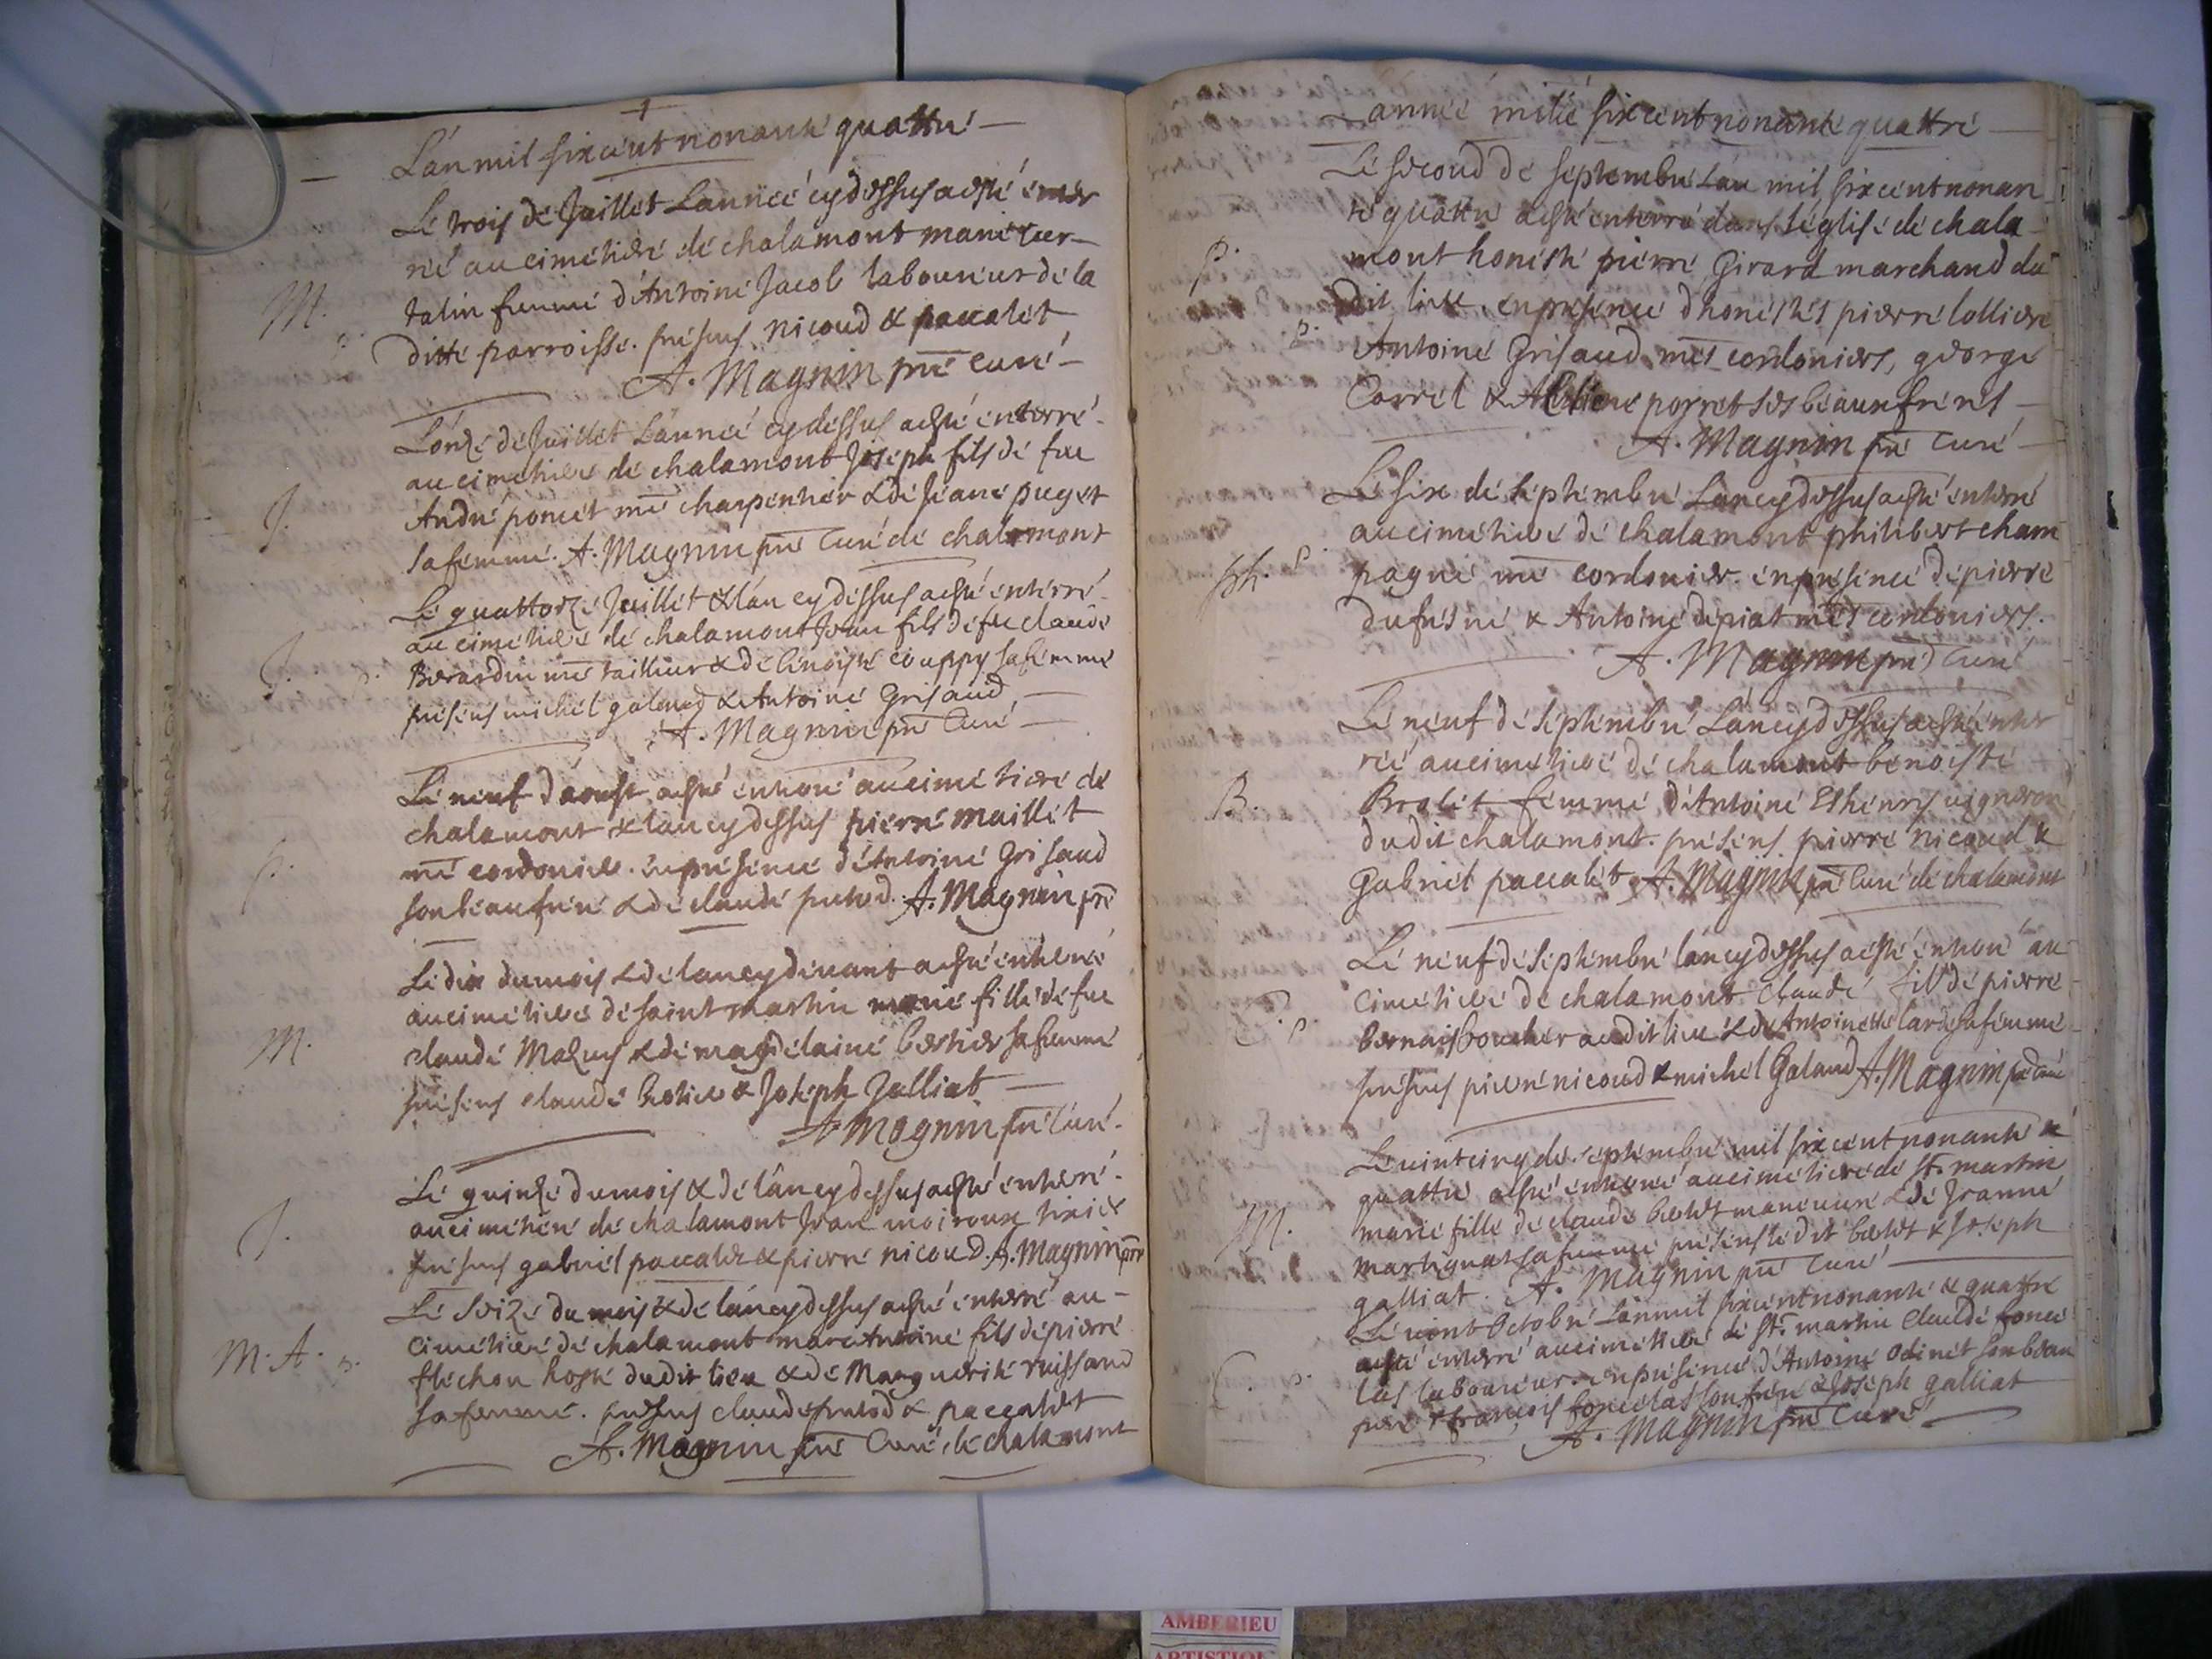 L'an mil six cent nonante quattre
Le trois de Juillet L'année cy dessus a esté enter
ré au cimetiere de chalamont marie
talin femme d'Antoine Jacob laboureur de la
M.
ditte parroisse. presens nicoud & paccalet
A. Magnin pre curé
L'onze de Juillet L'année cy dessus a esté enterré
au cimetiere de chalamont Joseph fils de feu
J.
André poncet me charpentier & de Jeane puget
sa femme. A. Magnin pre Curé de chalamont
Le quattorze Juillet & l'an cy dessus a esté enterré
au cimetiere de chalamont Jean fils de feu claude
J.
Berardin me tailleur & de benoiste couppy sa femme
presens michel galand & Antoine Grisaud
A. Magnin pre Curé
Le neuf d'aoust a esté enterré au cimetiere de
chalamont & l'an cy dessus pierre maillet
P.
me cordonier. en presence d'Antoine Grisaud
son beaufrere & de claude putod. A. Magnin pre
Le dix du mois & de l'an cy devant a esté enterré
au cimetiere de saint martin marie fille de feu
M.
claude & de magdelaine bertier sa femme
presens claude & Joseph Jalliat
A Magnin pre Curé.
Le quinze du mois & de l'an cy dessus a esté enterré
J.
au cimetiere de chalamont Jean moiroux tixier
presens gabriel paccalet & pierre nicoud. A. Magnin pre
Le seize du mois & de l'an cy dessus a esté enterré au
M. A.
cimetiere de chalamont marc Antoine fils de pierre
fléchon hoste dudit lieu & de Marguerite ruissand
sa femme. presens claude putod & paccalet
A. Magnin pre Curé de chalamont
L'année mille six cent nonante quattre
Le second de septembre L'an mil six cent nonan
te quattre a esté enterré dans l'eglise de chala
P.
mont honeste pierre Girard marchand du
dit lieu, en presence d'honestes pierre lolliere
Antoine Grisaud mes cordoniers, george
Carrel & porret ses beaux freres
A. Magnin pre Curé
Le six de septembre L'an cy dessus a esté enterré
au cimetiere de chalamont philibert cham
ph.
pagne me cordonier. en presence de pierre
dufresne & Antoine depiat mes cordoniers.
A. Magnin pre Curé
Le neuf de septembre L'an cy dessus a esté enter
ré au cimetiere de chalamont benoiste
B.
Brolet femme d'Antoine vigneron
dudit chalamont. presens pierre nicoud &
Gabriel paccalet A. Magnin pre Curé de chalamont
Le neuf de septembre l'an cy dessus a esté enterré au
cimetiere de chalamont Claude fils de pierre
C.
bernais boucher audit lieu & de Antoinette larde sa femme
presens pierre nicoud & michel Galand A. Magnin pre Curé
Le vint cinq de septembre mil six cent nonante &
quattre a esté enterré au cimetiere de st. martin
M.
marie fille de claude manœuvre & de Jeanne
martignat sa femme presens le dit & Joseph
galliat. A. Magnin pre Curé
Le vint Octobre L'an mil six cent nonante & quattre
a esté enterré au cimetiere de st. martin Claude fonce
C.
las laboureur en presence d'Antoine odinet son beau
pere & françois foncelas son frere & Joseph galliat
A. Magnin pre Curé
AMBERIEU